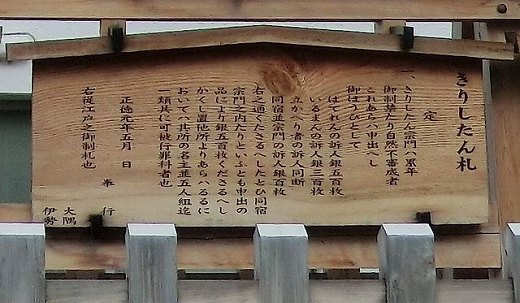 きりしたん札
定
一、きりしたん宗門ハ累年
御制禁たり自然不審成者
これあらハ申出へし
御ほうひとして
はてれんの訴人銀五百枚
いるまんの訴人銀三百枚
立かへり者の訴人同断
同宿並宗門の訴人銀百枚
右之通くたさるへしたとひ同宿
宗門之内たりといふとも申出の
品により銀五百枚くださるへし
かくし置他所よりあらハるるに
おいてハ其所の名主並五人組迄
一類共に可被行罪科者也
正徳元年五月 日
奉行
右従江戸之御制札也
大隅
伊勢